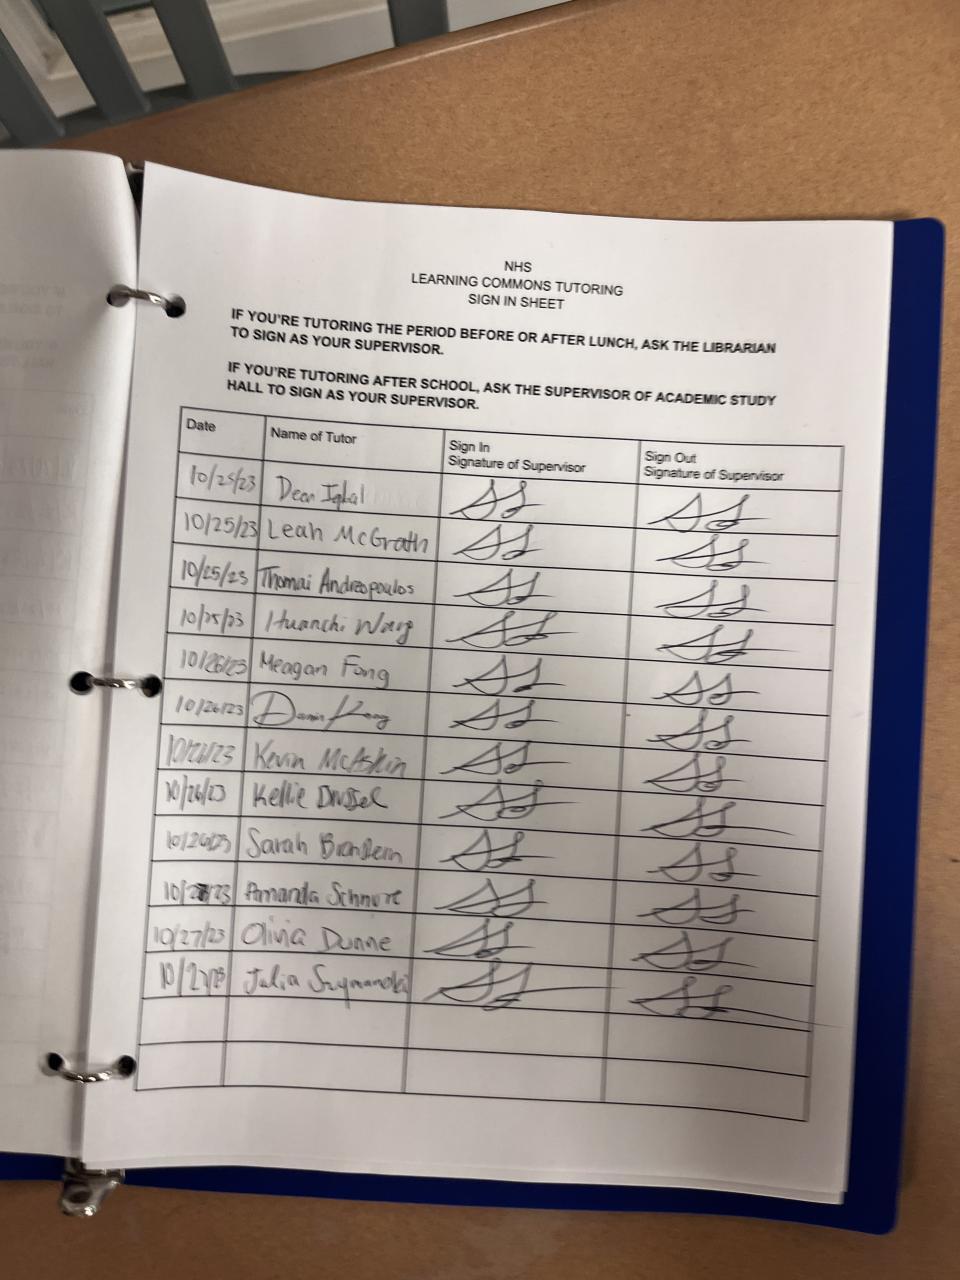 NHS
LEARNING COMMONS TUTORING
SIGN IN SHEET
IF YOU'RE TUTORING THE PERIOD BEFORE OR AFTER LUNCH, ASK THE LIBRARIAN
TO SIGN AS YOUR SUPERVISOR.
IF YOU'RE TUTORING AFTER SCHOOL, ASK THE SUPERVISOR OF ACADEMIC STUDY
HALL TO SIGN AS YOUR SUPERVISOR.
Date Name of Tutor Sign In Signature of Supervisor Sign Out Signature of Supervisor
10/25/23 Dean Iqbal
10/25/23 Leah McGrath
10/25/23 Thomai Andreopoulos
10/25/23 Huanchi Wang
10/26/23 Meagan Fong
10/26/23
10/26/23 Kevin McAskin
10/26/23 Kellie
10/26/23 Sarah
Amanda Schnore
10/27/23 Olivia Dunne
10/27/23 Julia Szymanski